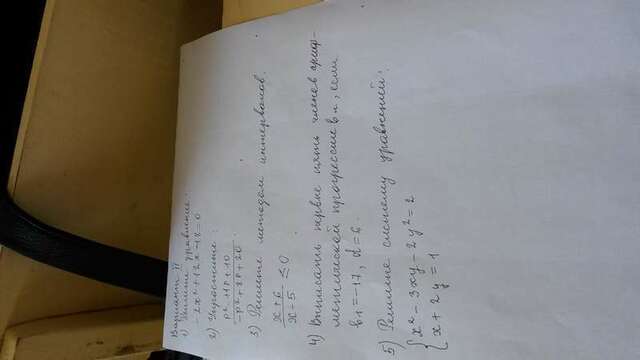 Вариант II
1) Решите уравнение:
-2x²+12x-18=0
2) Упростите:
p²+7p+10
-p²+8p+20
3) Решите методом интервалов.
x+6
x-5 ≤0
4) Выписать первые пять членов ариф-
метической прогрессии вn, если
в1=-17, d=6.
5) Решите систему уравнений:
x²-3xy-2y²=2
x+2y=1